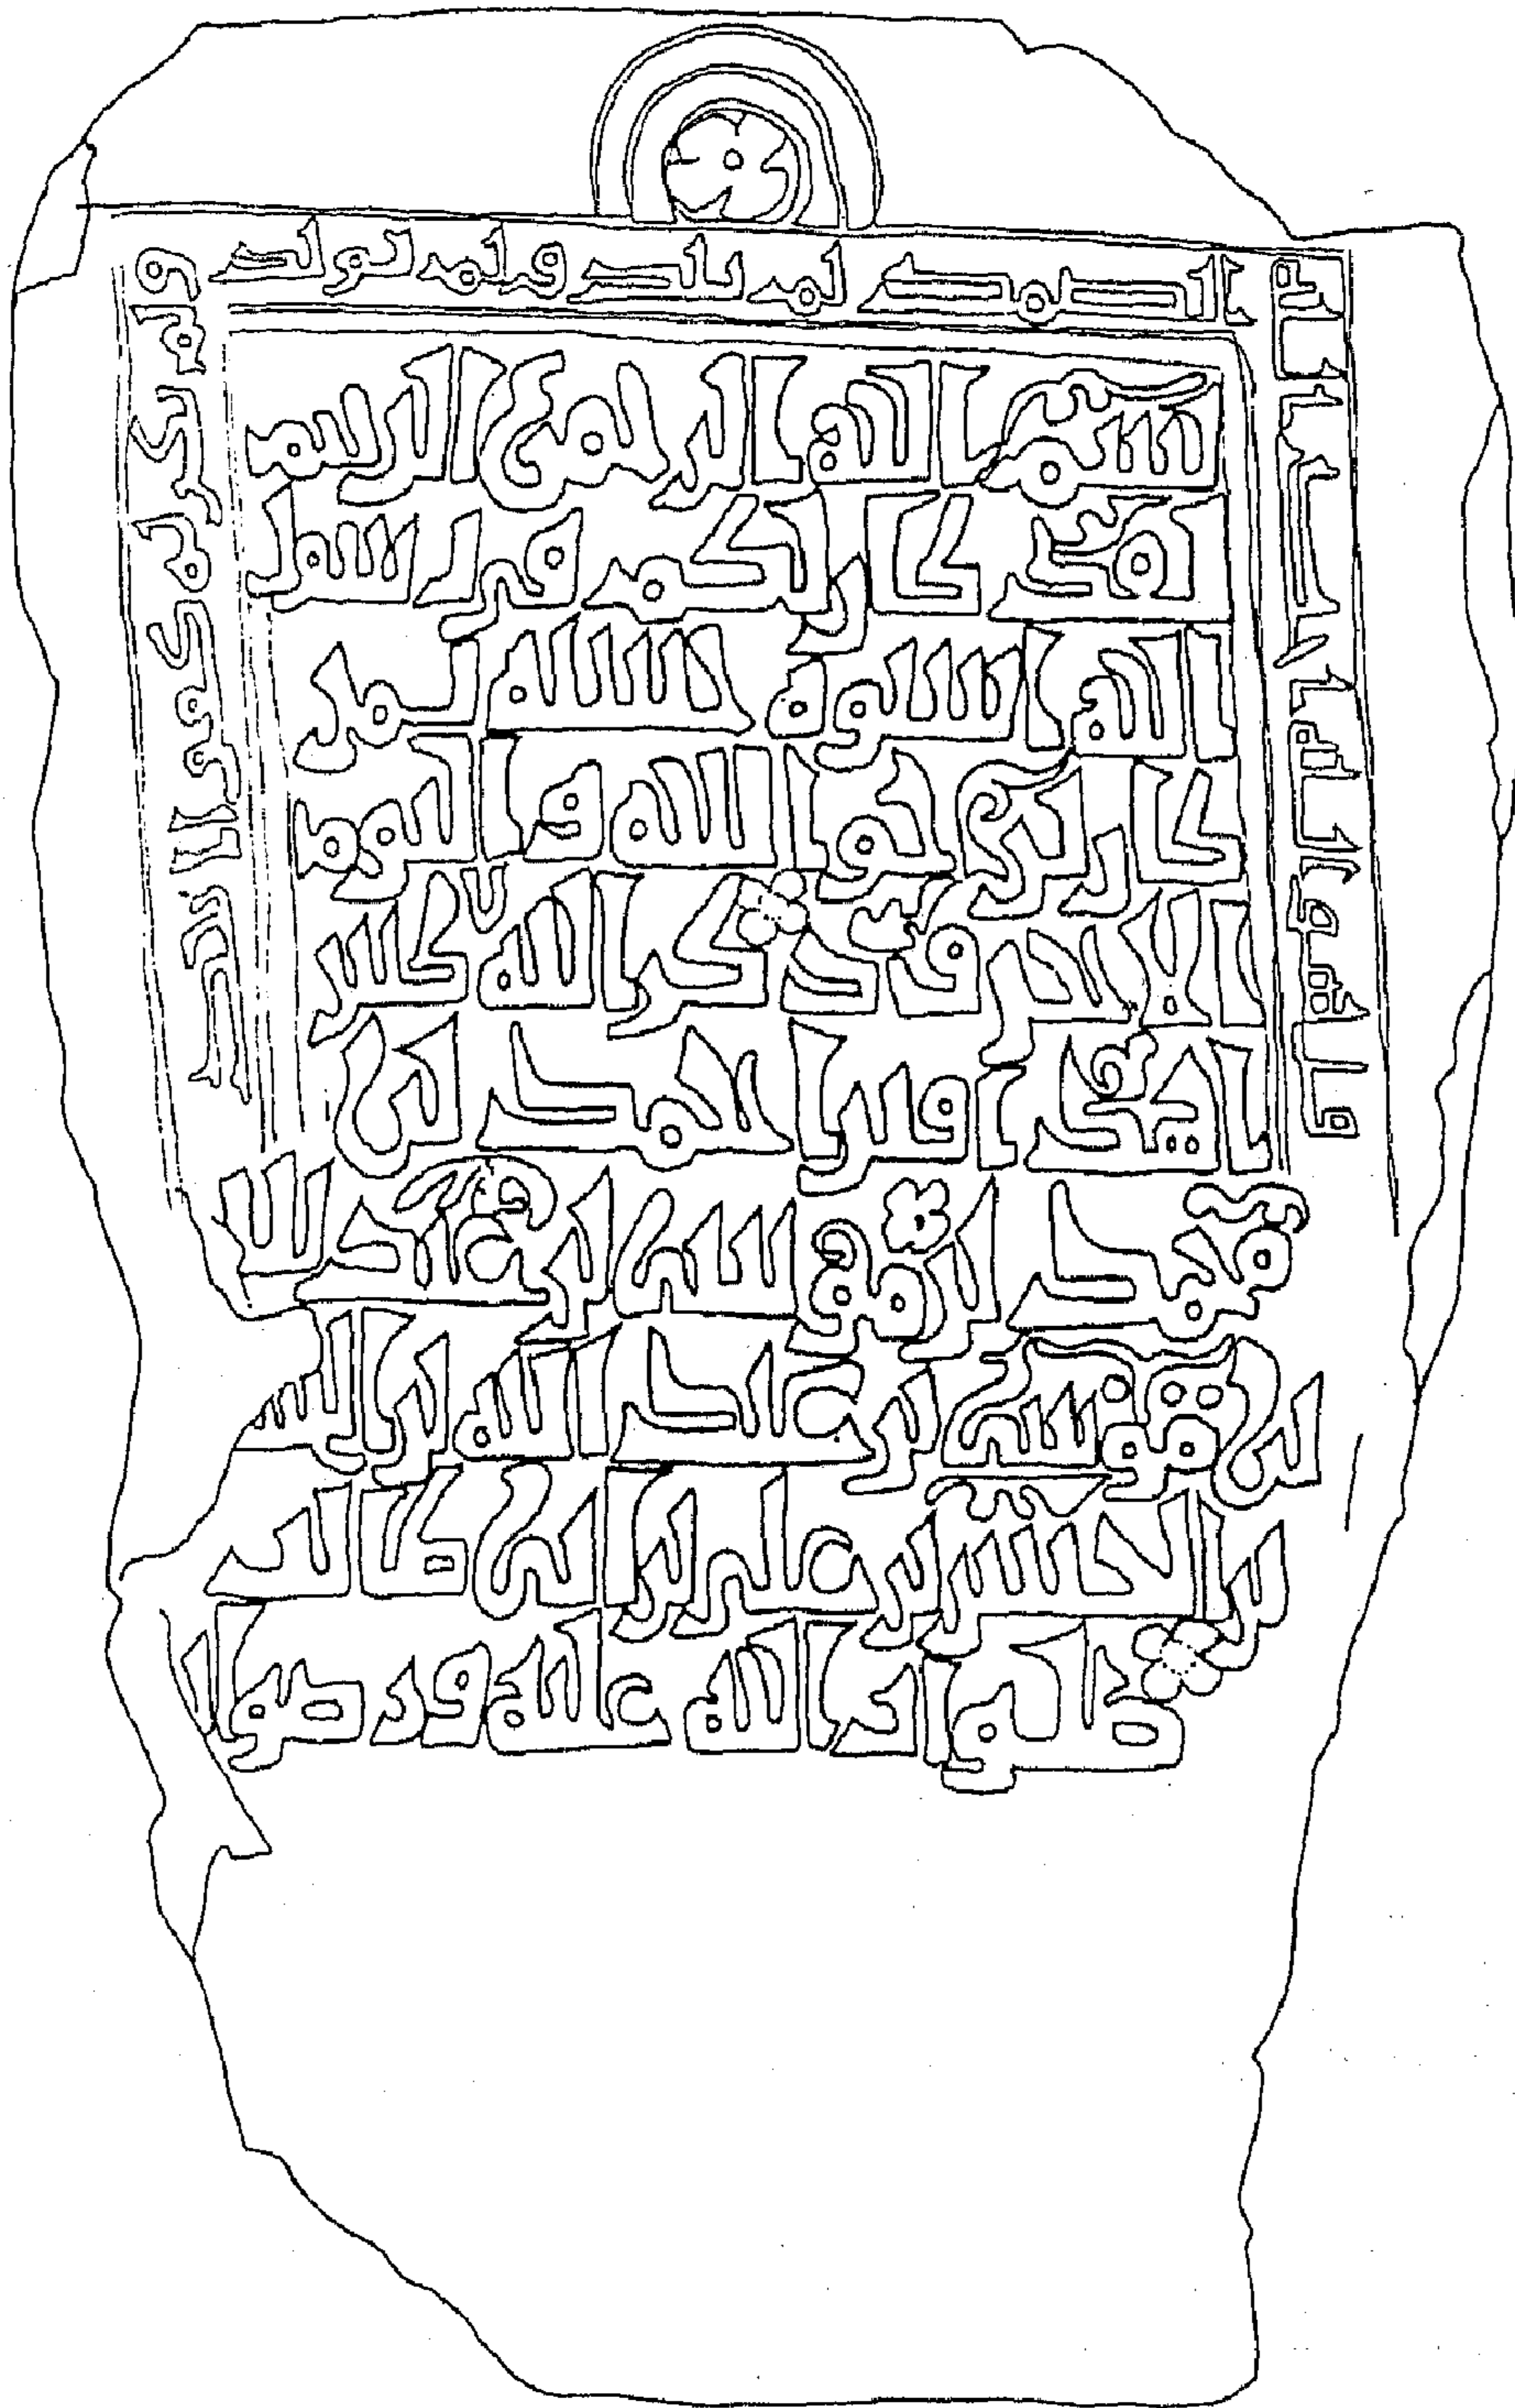 قل هو الله احد الله
الصمد لم يلد ولم يولد
ولم يكن له كفوا احد
بسم الله الرحمن الرحيم
لقد كان لكم في رسول
الله اسوة حسنة لمن
كان يرجو الله واليوم
الاخر وذكر الله كثير
ا هذا قبر احمد بن
محمد بن موسى بن عبد الله
بن موسى بن عبد الله بن الحسن
بن الحسن بن علي بن ابي طالب
صلوات الله عليه ورضوا